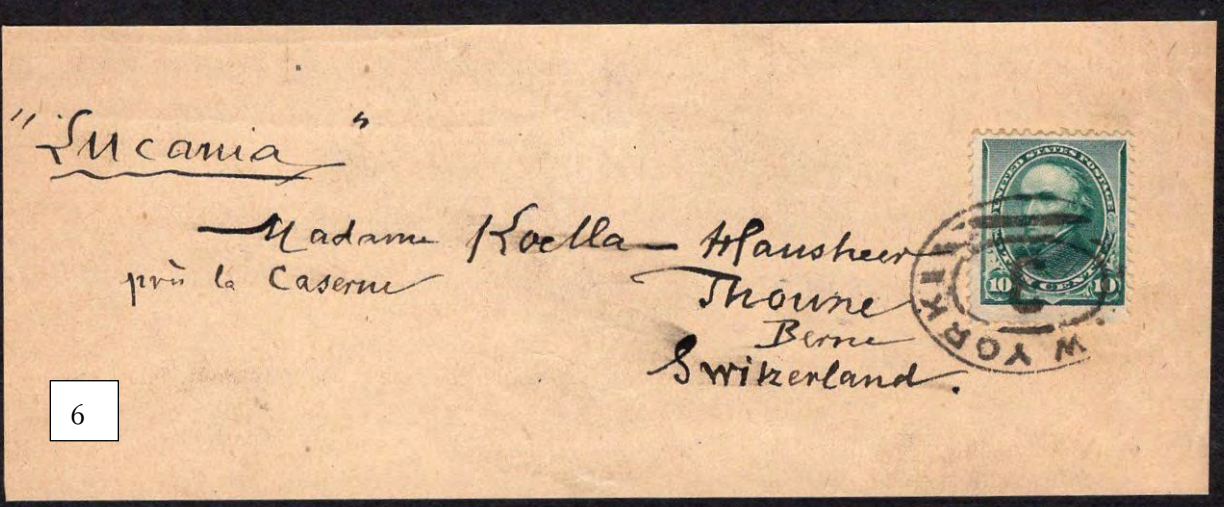 "Lucania"
Madame Koella-Hausheer
près la Caserne
Thoune
Berne
Switzerland.
UNITED STATES POSTAGE
10 CENTS 10
W YORK
3
6